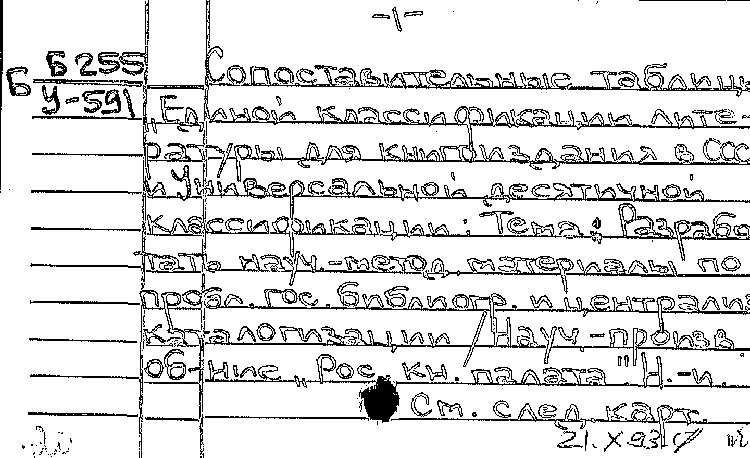 -1-
Б Б255 Сопоставительные таблицы
У-591 „Единой классификации лите-
ратуры для книгоиздания в ССС
и Универсальной десятичной
классификации: Тема: Разрабо
тать науч.-метод. материалы по
пробл. гос. библиогр. и централиз
каталогизации / Науч.-произв.
об-ние „Рос. кн. палата". Н.-и.
См. след. карт.
21.X.93